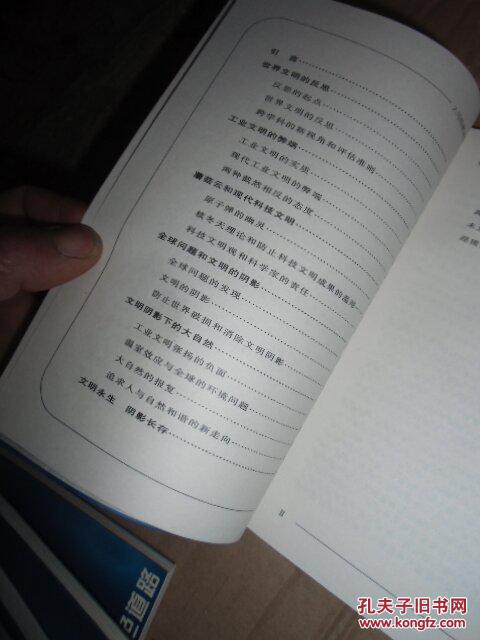 引 言
世界文明的反思
反思的起点
世界文明的反思
跨学科的新视角和评估准则
工业文明的弊端
工业文明的实质
现代工业文明的弊端
两种截然相反的态度
蘑菇云和现代科技文明
原子弹的幽灵
核冬天理论和防止科技文明成果的滥用
科技文明观和科学家的责任
全球问题和文明的阴影
全球问题的发现
文明的阴影
防止世界破损和消除文明阴影
文明阴影下的大自然
工业文明张扬的负面
温室效应与全球的环境问题
大自然的报复
追求人与自然和谐的新走向
文明永生 阴影长存
II
道路
孔夫子旧书网
www.kongfz.com